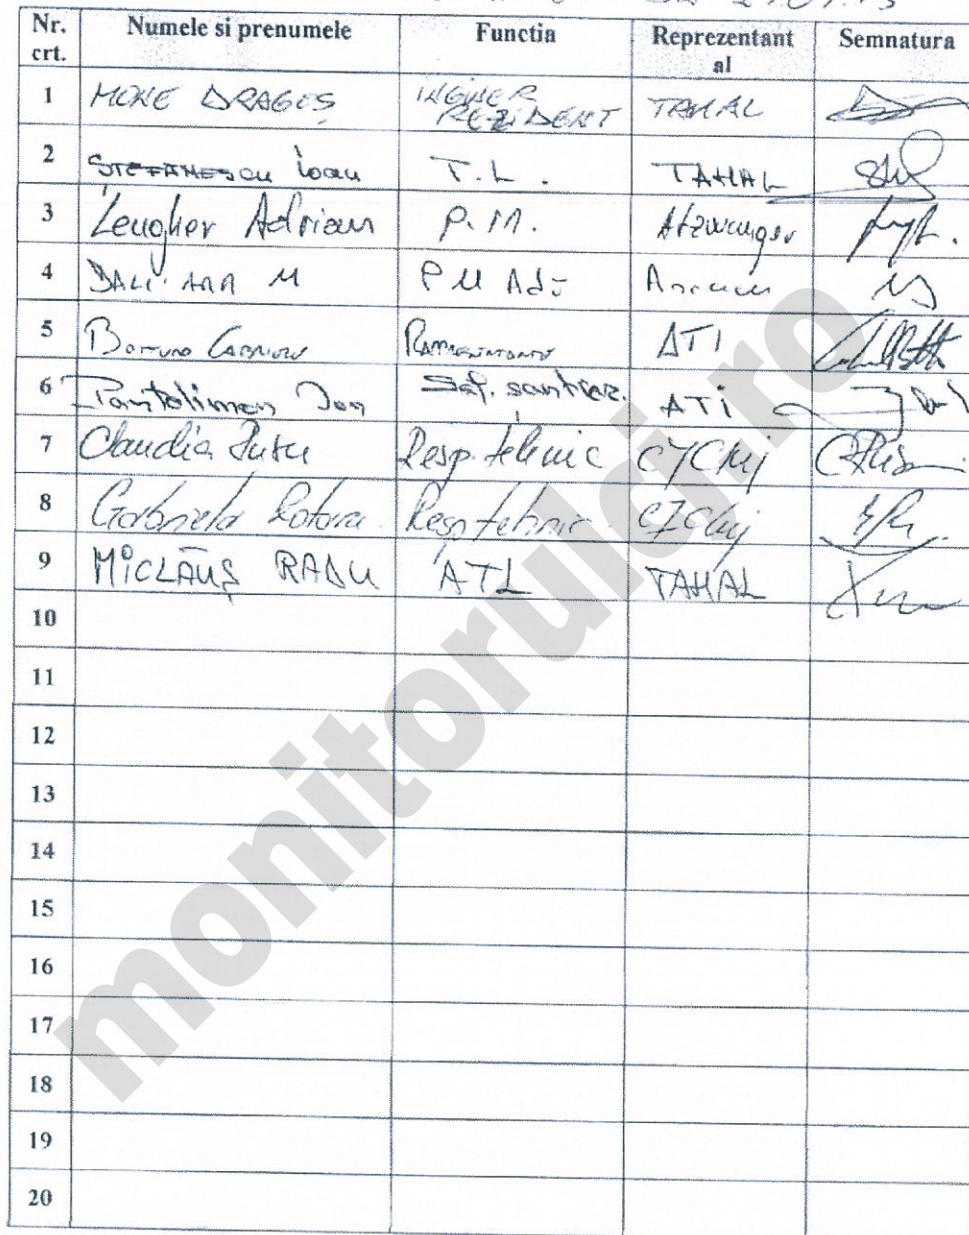 Nr. crt. Numele si prenumele Functia Reprezentant al Semnatura
1 MONE DRAGOȘ INGINER REZIDENT TAHAL
2 STEFANESCU Ioan T.L. TAHAL
3 Lengher Adrian P.M. Atzwanger
4 M PM Adj
5 ATI
6 Pantolimon Ion Sef. santier. ATI
7 Claudia Resp. tehnic CJCluj
8 Gabriela Rotaru Resp tehnic CJCluj
9 MICLĂUȘ RADU ATL TAHAL
10
11
12
13
14
15
16
17
18
19
20
monitorulcj.ro